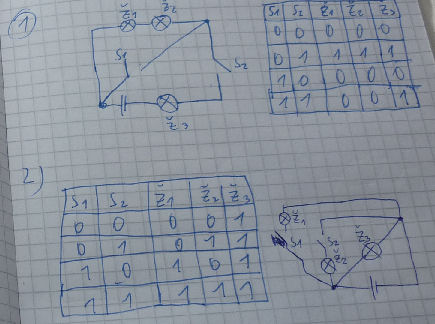 1
ž1 ž2
S1
S2
ž3
S1 S2 ž1 ž2 ž3
0 0 0 0 0
0 1 1 1 1
1 0 0 0 0
1 1 0 0 1
2)
S1 S2 ž1 ž2 ž3
0 0 0 0 1
0 1 0 1 1
1 0 1 0 1
1 1 1 1 1
ž1
S1 S2 ž3
ž2